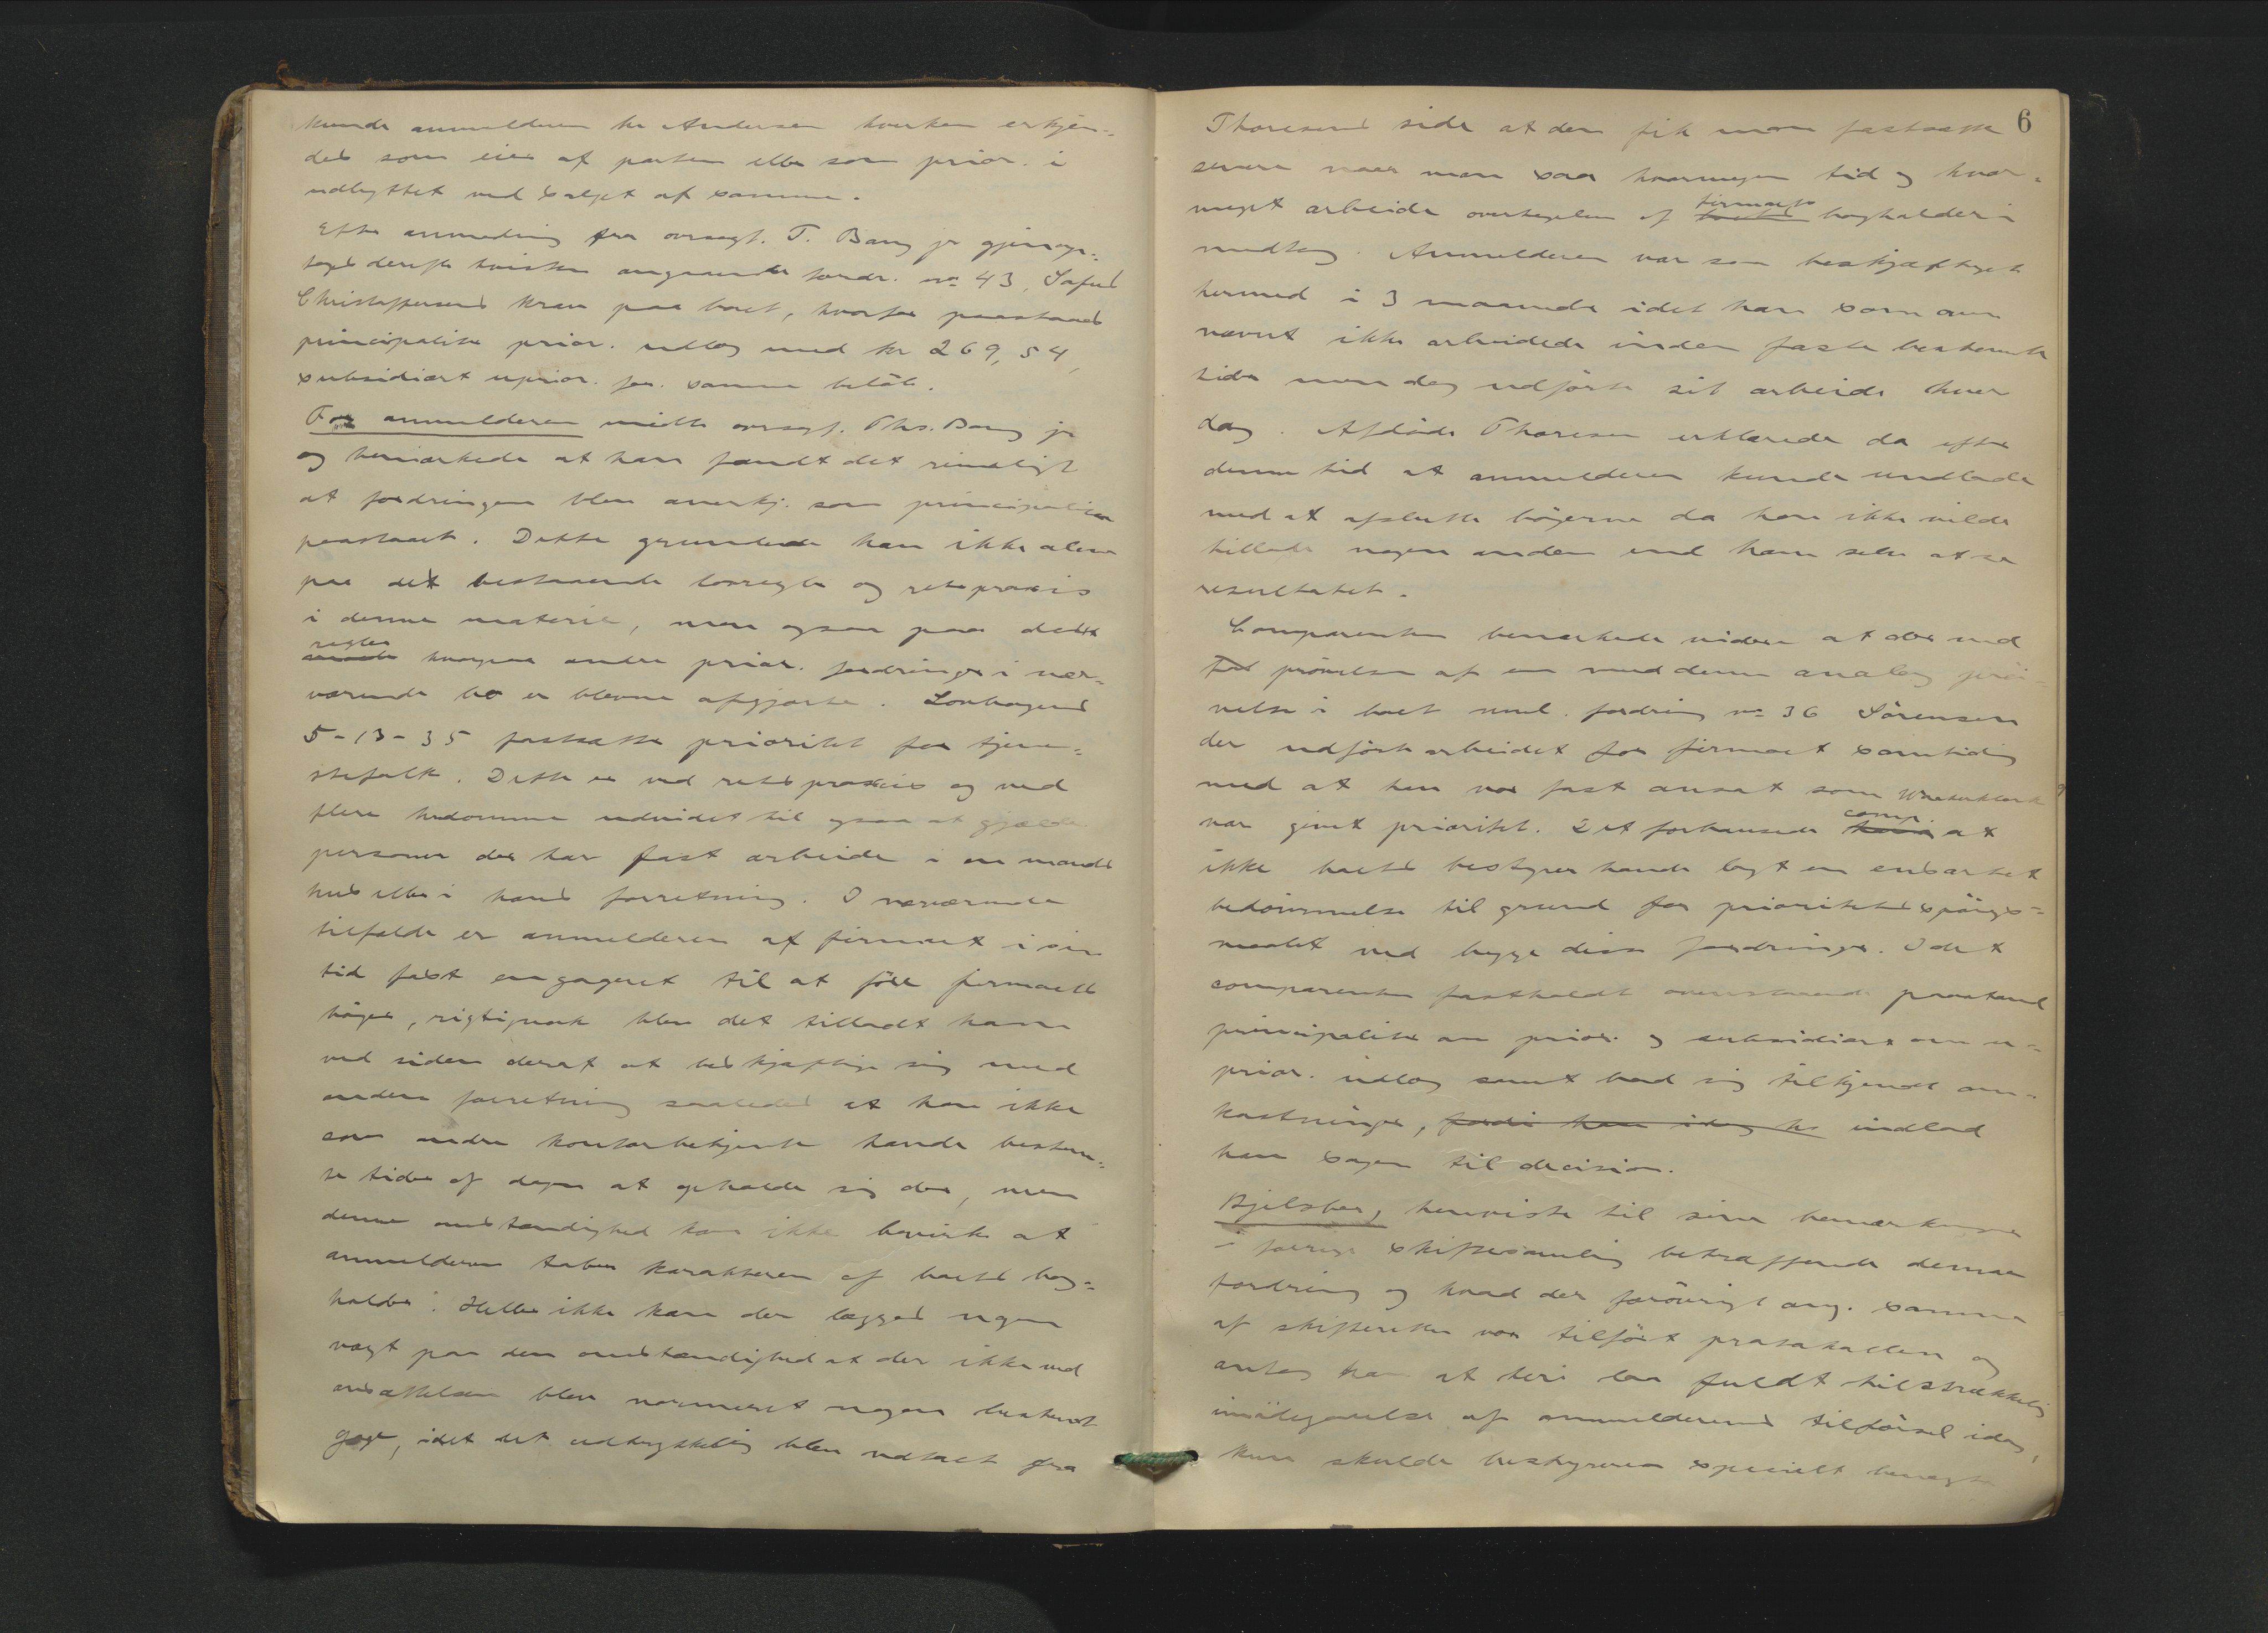 kunde anmelderen hr Andersen hverken erkjen-
des som eier af parten eller som prior. i
udbyttet ved salget af samme.
Efter anmodning fra overragf. T. Bang jr gjenop-
toges derefter tvisten angaaende fordr. no 43,
Christoffersens krav paa boet, hvorfor paastaaes
principaliter prior. utlæg med kr 269,54,
subsidiært uprior. for samme beløb.
For anmelderen mødte overragf. Ths. Bang jr
og bemærkede at han fandt det rimeligt
at fordringen blev anerkj. som principaliter
paastaaet. Dette grundede han ikke alene
paa det bestaaende lovregler og retspraxis
i denne materie, men ogsaa paa det
regler
hvorpaa andre prior. fordringer i nær-
værende bo er blevne afgjorte. Lovbogens
5-13-35 fastsætte prioritet for tjene-
stefolk. Dette er ved retspraxis og ved
flere hrdomme udvidet til ogsaa at gjælde
personer der har fast arbeide i en mands
hus eller i hans forretning. I nærværende
tilfælde er anmelderen af firmaet i sin
tid fast engageret til at føre firmaets
bøger, rigtignok blev det tilladt ham
ved siden deraf at beskjæftige sig med
anden forretning saaledes at han ikke
som andre kontorbetjente havde bestem-
te tider af dagen at opholde sig der, men
denne omstændighed kan ikke bevirke at
anmelderen taber karakteren af boets bog-
holder. Heller ikke kan der lægges nogen
vægt paa den omstændighed at der ikke ved
ansættelsen blev normeret nogen bestemt
gage, idet det udtrykkelig blev udtalt fra
6
Thoresens side at den fik man fastsætte
senere naar man saa hvormegen tid og hvor-
firmaets
meget arbeide overtagelsen af bogholderi
medtog. Anmelderen var som beskjæftiget
hermed i 3 maaneder idet han som oven
nævnt ikke arbeidede inden faste bestemte
tider men dog udførte sit arbeide hver
dag. Afdøde Thoresen erklærede da efter
denne tid at anmelderen kunde undlade
med at afslutte bøgerne da han ikke vilde
tillade nogen anden end ham selv at se
resultatet.
Comparenten bemærkede videre at der ved
prøvelsen af en med denne analog prø-
velse i boet nml. fordring no 36 Sørensen
der udførte arbeidet for firmaet samtidig
med at han var fast ansat som
comp.
var givet prioritet. Det forbausede at
ikke boets bestyrer havde lagt en ensartet
bedømmelse til grund for prioritetsspørgs-
maalet ved begge disse fordringer. Idet
comparenten fastholdt ovenstaaende paastand
principaliter om prior. og subsidiært om u-
prior. udlæg samt bad sig tilkjendt om-
kostninger, fordi han idag hr indlod
han sagen til decision.
Bjelsber, henviste til sine bemærkninger
i forrige skiftesamling betræffende denne
fordring og hvad der forøvrigt ang. samme
af skifteretten var tilført protokollen og
antog han at heri laa fuldt tilstrækkelig
imødegaaelse af anmelderens tilførsel idag,
kun skulde bestyreren specielt benægte